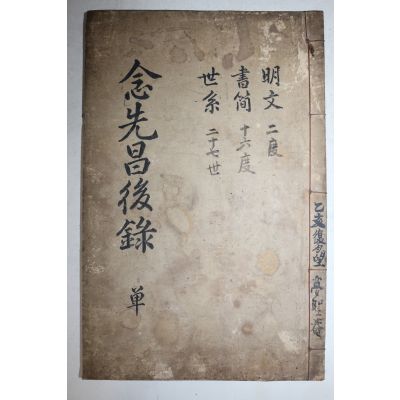 明文 二度
書简 十六度
世系 二十七世
念先昌後錄 单
乙亥復月望